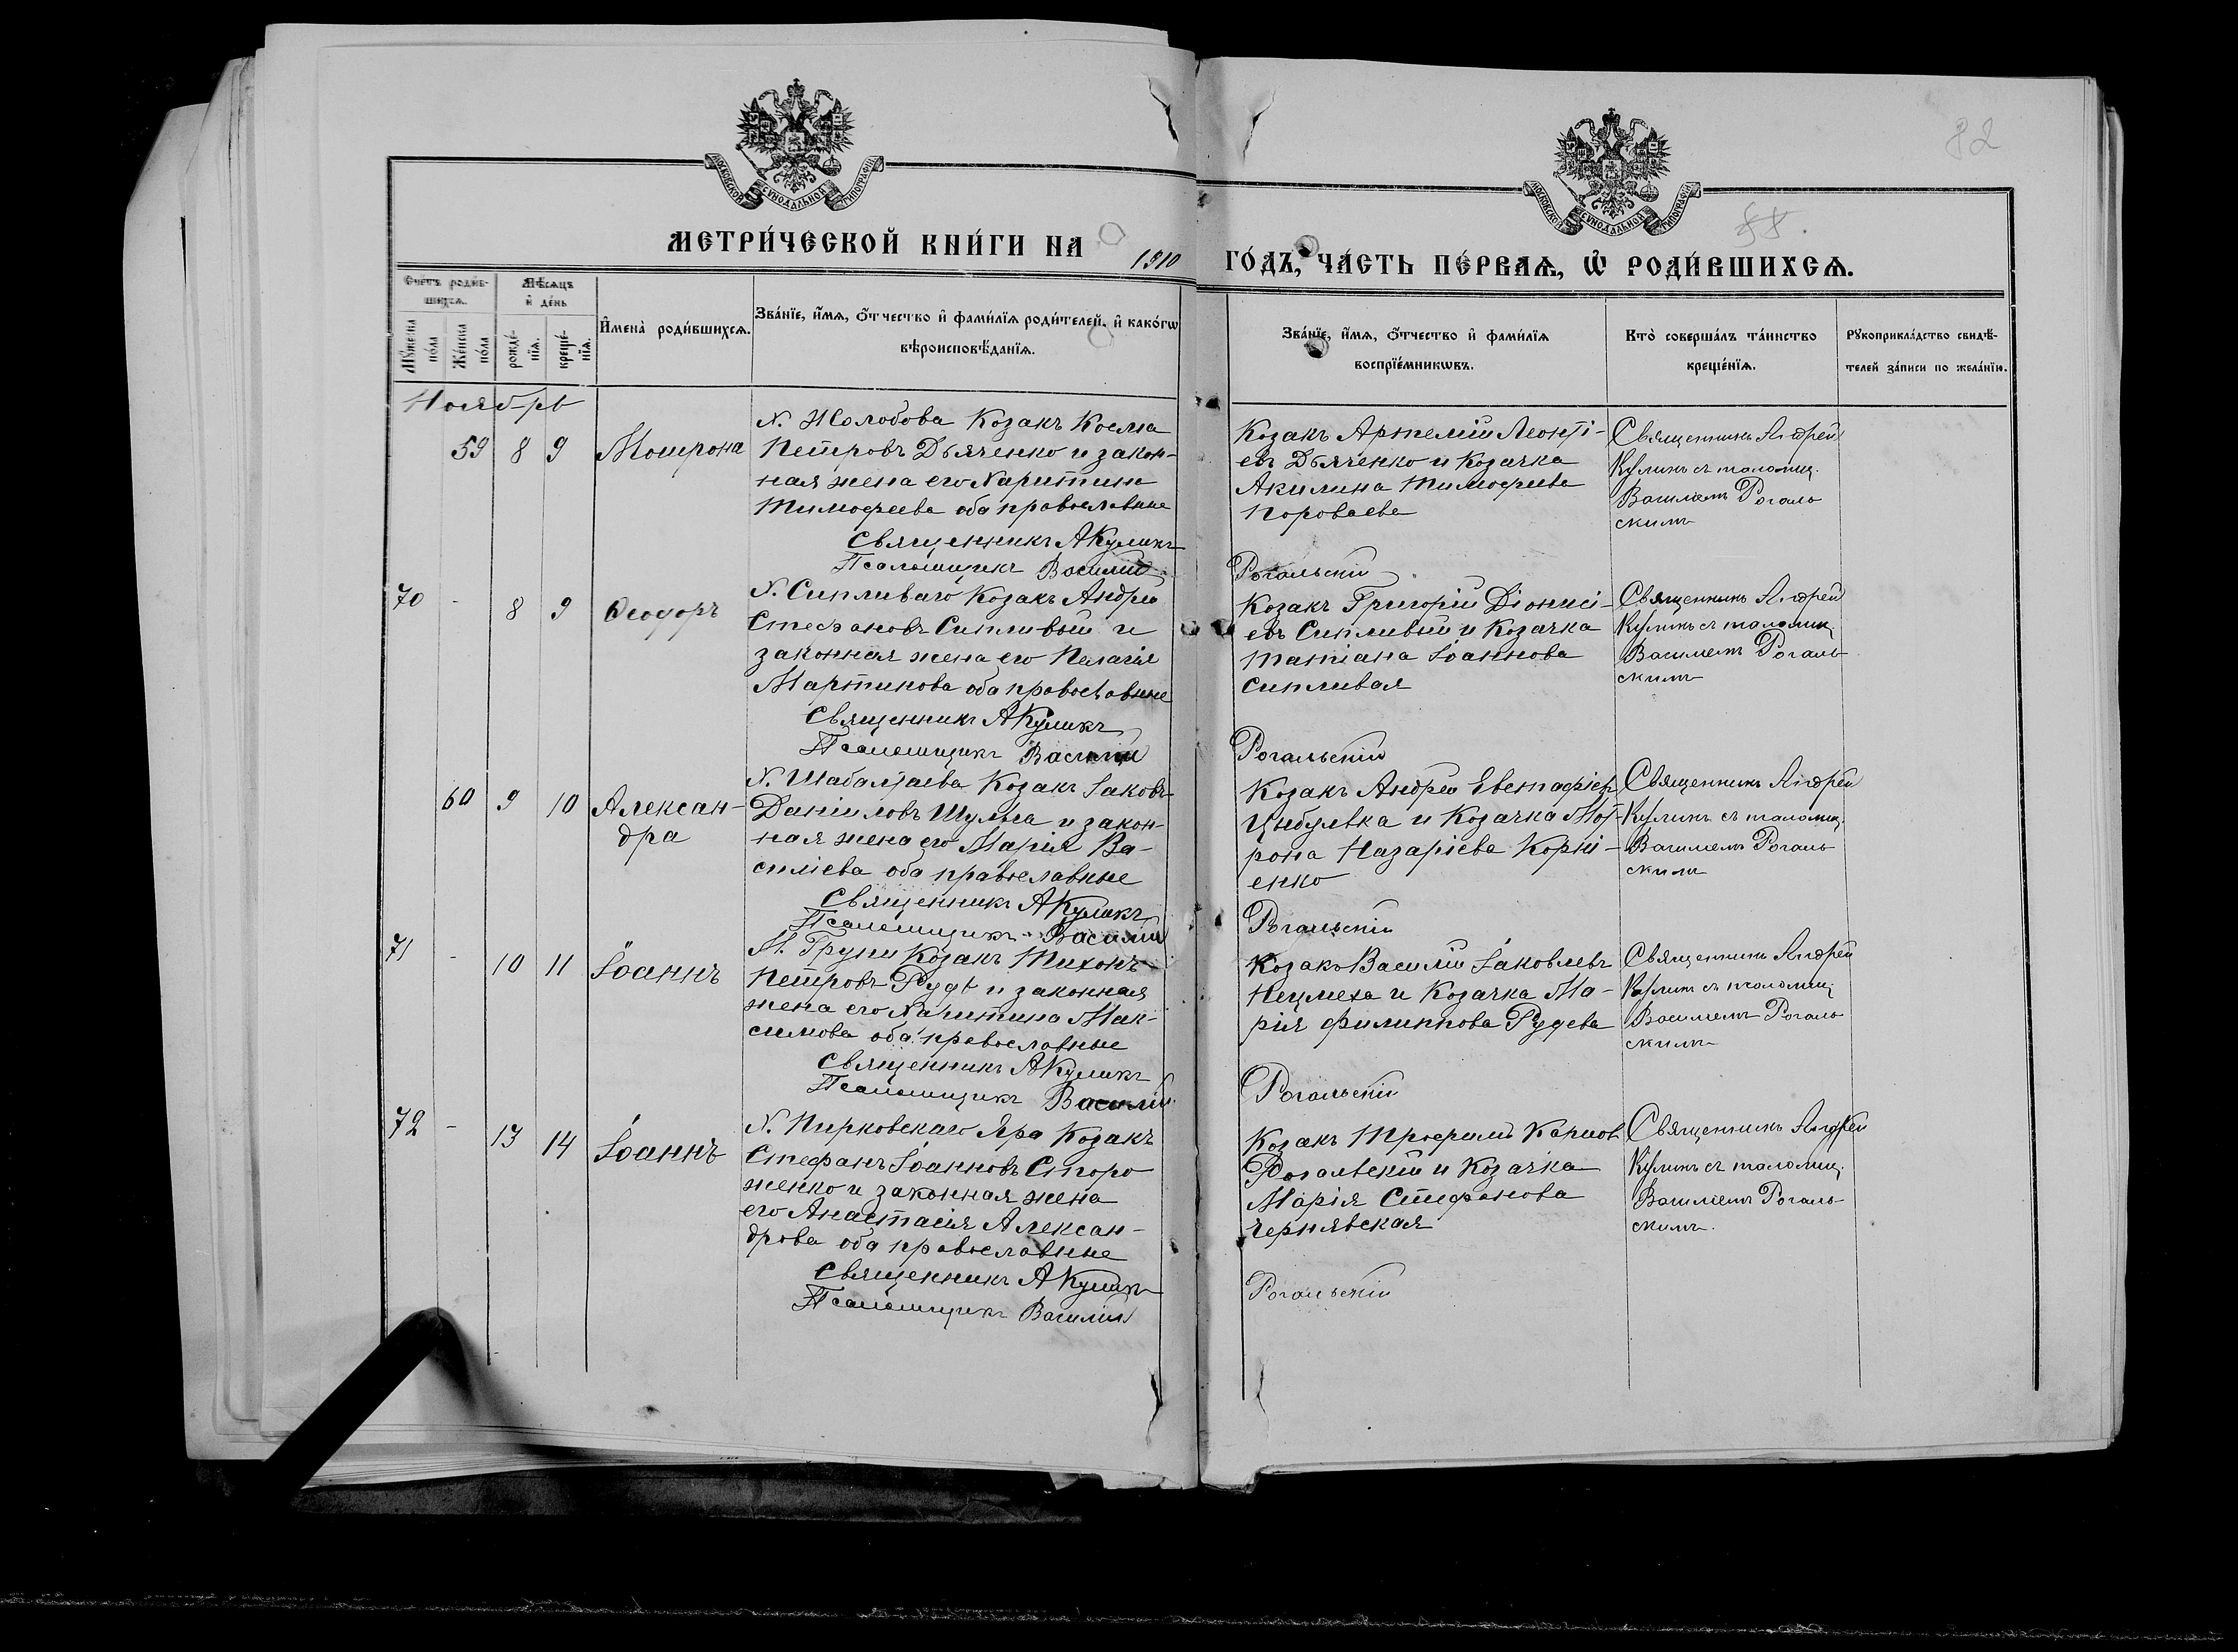 82
МОСКОВСКОЙ СѴНОДАЛЬНОЙ ТИПОГРАФІИ
МОСКОВСКОЙ СѴНОДАЛЬНОЙ ТИПОГРАФІИ
МЕТРИ́ЧЕСКОЙ КНИ́ГИ НА 1910 ГО́ДЪ, ЧА́СТЬ ПЕ́РВАѦ, Ѡ҆ РОДИ́ВШИХСѦ.
Счетъ роди́в-
шихсѧ.
Мѣ́сѧцъ
и҆ де́нь
Му́жеска
по́ла
Же́нска
по́ла
рожде́-
нїѧ.
креще́-
нїѧ.
И҆мена̀ роди́вшихсѧ.
Зва́нїе, и҆́мѧ, ѻ҆́тчество и҆ фами́лїѧ роди́телей, и҆ како́гѡ
вѣроисповѣ́данїѧ.
Зва́нїе, и҆́мѧ, ѻ҆́тчество и҆ фами́лїѧ
воспрїе́мникѡвъ.
Кто̀ соверша́лъ та́инство
креще́нїѧ.
Рꙋкоприкла́дство свидѣ́-
телей за́писи по жела́нїю.
Ноябрь
59 8 9 Мотрона
Х. Жолобова Козакъ Косма
Петровъ Дьяченко и закон-
ная жена его Харитина
Тимофеева оба православные
Священникъ А Куликъ
Псаломщикъ Василій
Козакъ Артемій Леонті-
евъ Дьяченко и Козачка
Акилина Тимофеева
Пороваева
Рогальскій
Священникъ Андрей
Куликъ съ псаломщ.
Василіемъ Рогаль
скимъ
70 - 8 9 Ѳеодоръ
Х. Сипливаго Козакъ Андрей
Стефановъ Сипливый и
законная жена его Пелагія
Мартинова оба православные
Священникъ А Куликъ
Псаломщикъ Василій
Козакъ Григорій Діонисі-
евъ Сипливый и Козачка
Татіана Іоаннова
Сипливая
Рогальскій
Священникъ Андрей
Куликъ съ псаломщ.
Василіемъ Рогаль
скимъ
60 9 10 Алексан-
дра
Х. Шабалтаева Козакъ Іаковъ
Даніиловъ Шульга и закон-
ная жена его Марія Ва-
силіева оба православные
Священникъ А Куликъ
Псаломщикъ Василій
Козакъ Андрей Евстафіевъ
Цыбулька и Козачка Мот-
рона Назаріева Корні-
енко
Рогальскій
Священникъ Андрей
Куликъ съ псаломщ.
Василіемъ Рогаль
скимъ
71 - 10 11 Іоаннъ
М. Груни Козакъ Тихонъ
Петровъ Рудь и законная
жена его Харитина Мак-
симова оба православные
Священникъ А Куликъ
Псаломщикъ Василій
Козакъ Василій Іаковлевъ
и Козачка Ма-
рія Филиппова Рудева
Рогальскій
Священникъ Андрей
Куликъ съ псаломщ.
Василіемъ Рогаль
скимъ
72 - 13 14 Іоаннъ
Х. Пирковскаго Яра Козакъ
Стефанъ Іоанновъ Сторо
женко и законная жена
его Анастасія Алексан-
дрова оба православные
Священникъ А Куликъ
Псаломщикъ Василій
Козакъ Трофимъ Карповъ
Рогальскій и Козачка
Марія Стефанова
Чернявская
Рогальскій
Священникъ Андрей
Куликъ съ псаломщ.
Василіемъ Рогаль-
скимъ.